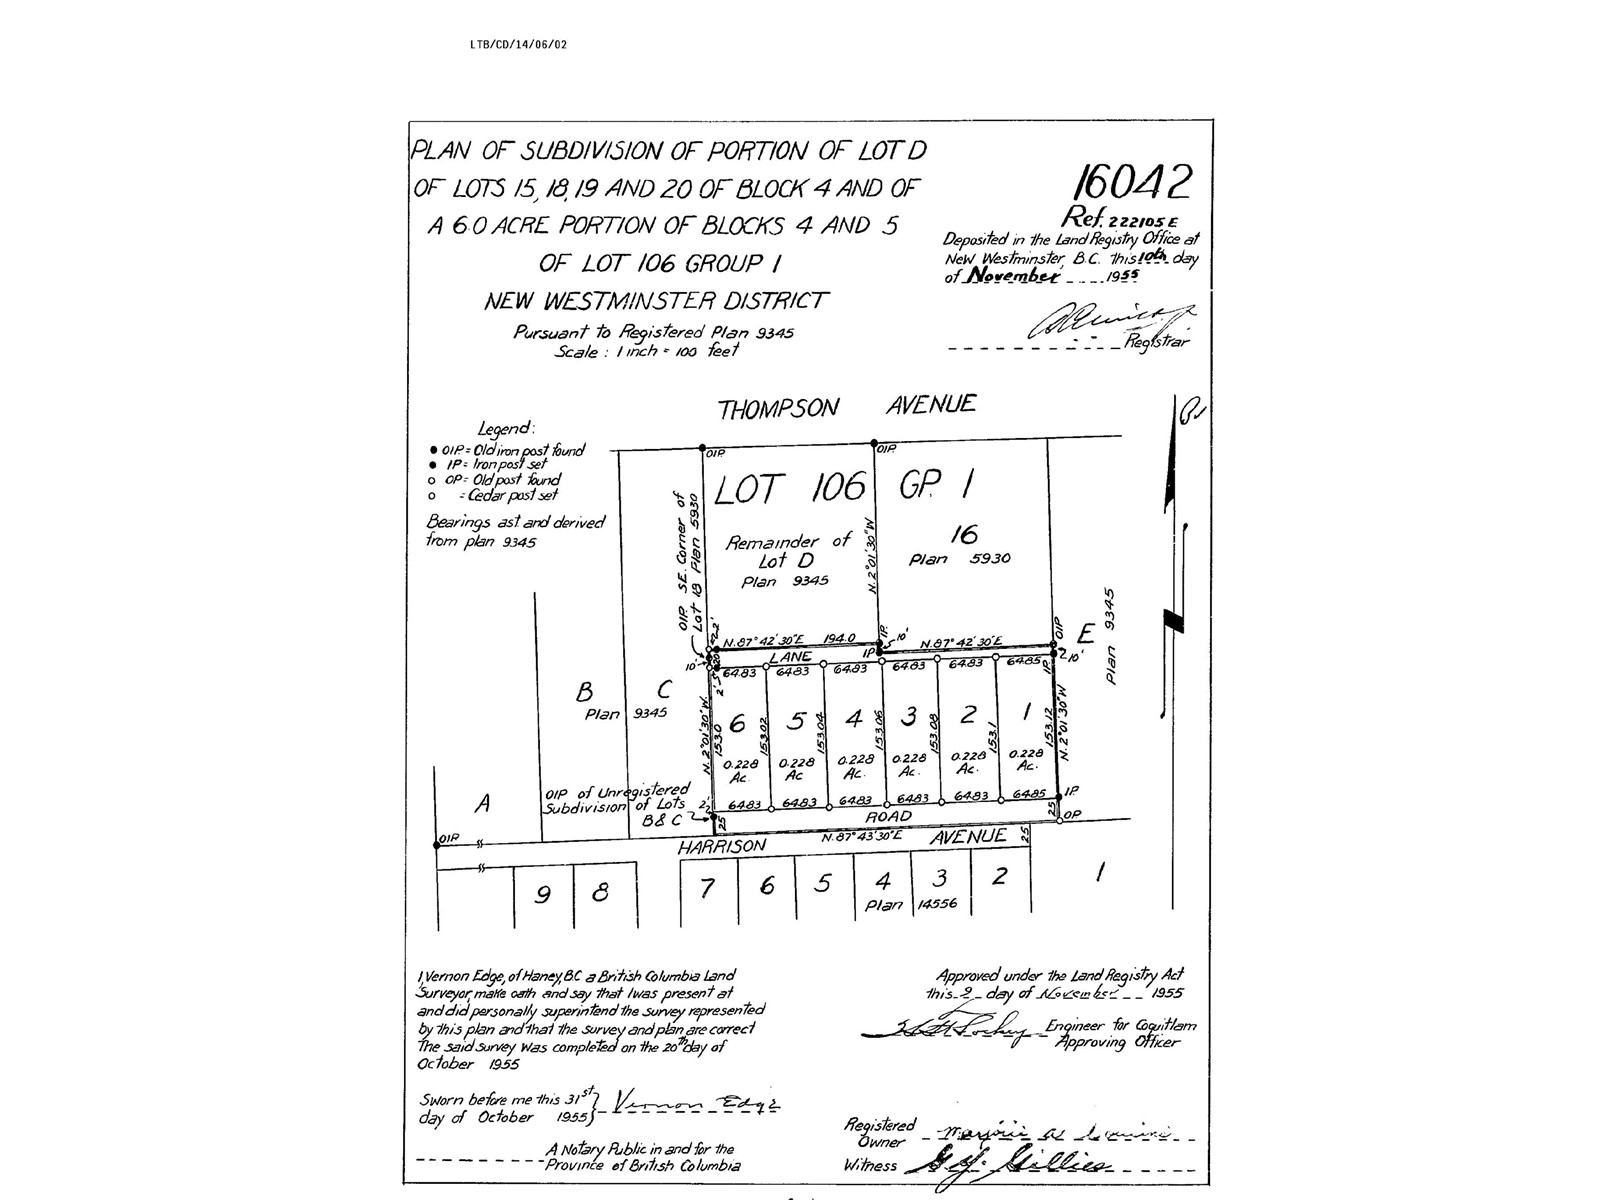 LTB/CD/14/06/02
PLAN OF SUBDIVISION OF PORTION OF LOT D
OF LOTS 15, 18, 19 AND 20 OF BLOCK 4 AND OF
A 6.0 ACRE PORTION OF BLOCKS 4 AND 5
OF LOT 106 GROUP 1
NEW WESTMINSTER DISTRICT
Pursuant to Registered Plan 9345
Scale : 1 inch = 100 feet
16042
Ref. 222105E
Deposited in the Land Registry Office at
New Westminster, B.C. this 10th day
of November 1955
Registrar
THOMPSON AVENUE
Legend:
OIP = Old iron post found
IP = Iron post set
OP = Old post found
= Cedar post set
Bearings ast. and derived
from plan 9345
OIP
OIP
LOT 106 GP. 1
OIP. S.E. Corner of
Lot 18 Plan 5930
Remainder of
Lot D
Plan 9345
N. 2°01'30"W
16
Plan 5930
Plan 9345
E
OIP
N. 87°42'30"E 194.0
IP
10'
N. 87°42'30"E
LANE
IP
10'
10'
IP
64.83 64.83 64.83 64.83 64.83 64.85
B
C
Plan 9345
N. 2°01'30"W
153.0
6
153.02
5
153.04
4
153.06
3
153.08
2
153.1
1
153.12
N. 2°01'30"W
0.228 Ac.
0.228 Ac
0.228 Ac.
0.228 Ac.
0.228 Ac.
0.228 Ac.
A
OIP of Unregistered
Subdivision of Lots
B & C
64.83 64.83 64.83 64.83 64.83 64.85
IP
25
ROAD
25
OP
OIP
N. 87°43'30"E
HARRISON AVENUE
25
9 8 7 6 5 4 3 2 1
Plan 14556
I, Vernon Edge, of Haney, B.C. a British Columbia Land
Surveyor, make oath and say that I was present at
and did personally superintend the survey represented
by this plan and that the survey and plan are correct
The said survey was completed on the 20th day of
October 1955
Sworn before me this 31st
day of October 1955
Vernon Edge
A Notary Public in and for the
Province of British Columbia
Approved under the Land Registry Act
this 2 day of November 1955
Engineer for Coquitlam
Approving Officer
Registered
Owner
Witness G.Y. Gillies